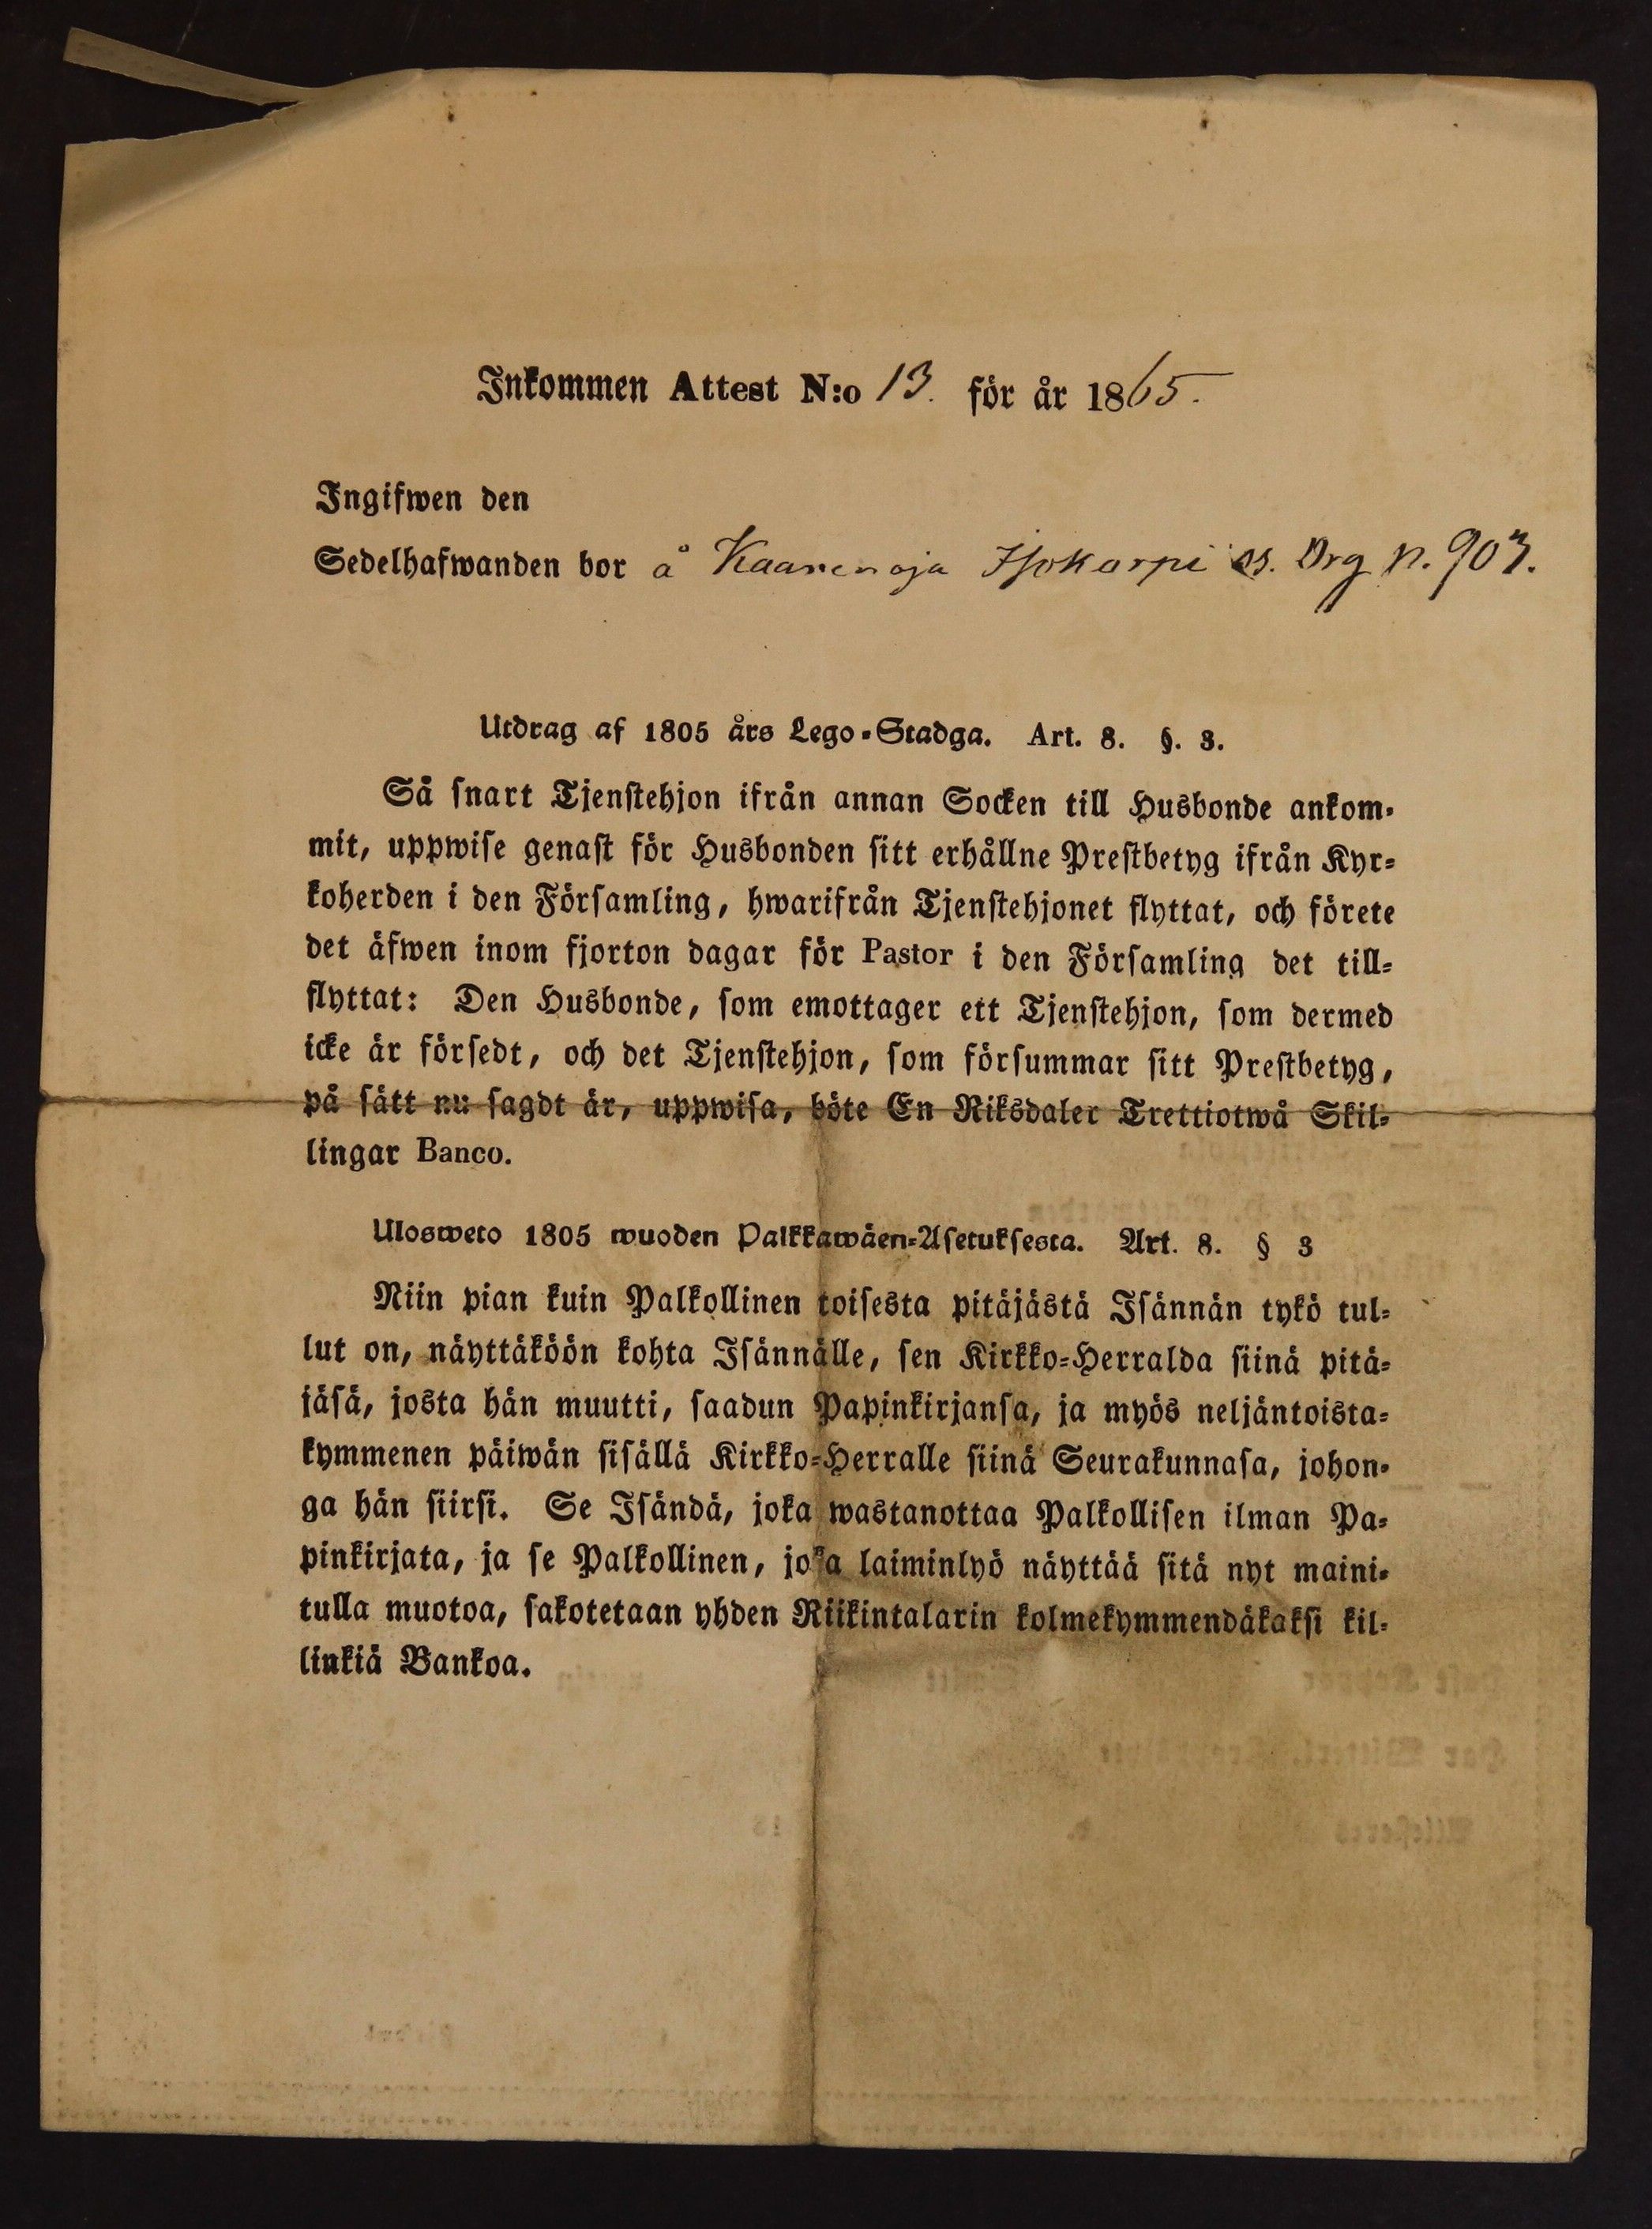 Inkommen Attest N:o 13. för år 1865.
Ingifwen den
Sedelhafwanden bor å Kaarenoja
Utdrag af 1805 års Lego-Stadga. Art. 8. §. 3.
Så snart Tjenstehjon ifrån annan Socken till Husbonde ankom-
mit, uppwise genast för Husbonden sitt erhållne Prestbetyg ifrån Kyr-
koherden i den Församling, hwarifrån Tjenstehjonet flyttat, och förete
det äfwen inom fjorton dagar för Pastor i den Församling det till-
flyttat: Den Husbonde, som emottager ett Tjenstehjon, som dermed
icke är försedt, och det Tjenstehjon, som försummar sitt Prestbetyg,
på sätt nu sagdt är, uppwisa, böte En Riksdaler Trettiotwå Skil-
lingar Banco.
Ulosweto 1805 wuoden Palkkawäen-Asetuksesta. Art. 8. § 3
Niin pian kuin Palkollinen toisesta pitäjästä Isännän tykö tul-
lut on, näyttäköön kohta Isännälle, sen Kirkko-Herralda siinä pitä-
jäsä, josta hän muutti, saadun Papinkirjansa, ja myös neljäntoista-
kymmenen päiwän sisällä Kirkko-Herralle siinä Seurakunnasa, johon-
ga hän siirsi. Se Isändä, joka wastanottaa Palkollisen ilman Pa-
pinkirjata, ja se Palkollinen, joka laiminlyö näyttää sitä nyt maini-
tulla muotoa, sakotetaan yhden Riikintalarin kolmekymmendäkaksi kil-
linkiä Bankoa.